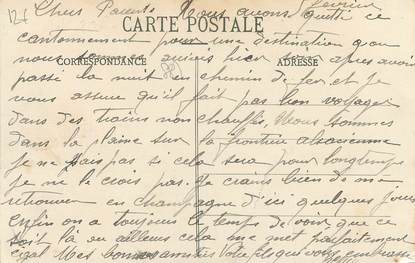 12f
février
Chers Parents Nous avons quitté ce
CARTE POSTALE
cantonnement pour une destination que
nous arrivés hier après avoir
CORRESPONDANCE
ADRESSE
passé la nuit en chemin de fer et je
vous assure qu'il fait pas bon voyager
dans des trains non chauffés. Nous sommes
dans la plaine sur la frontière alsacienne
je ne sais pas si cela sera pour longtemps
je ne le crois pas. Je crains bien de me
retrouver en champagne d'ici quelques jours
enfin on a toujours le temps de voir que ce
soit là ou ailleurs cela me met parfaitement
égal Mes bonnes amitiés Votre fils qui vous embrasse